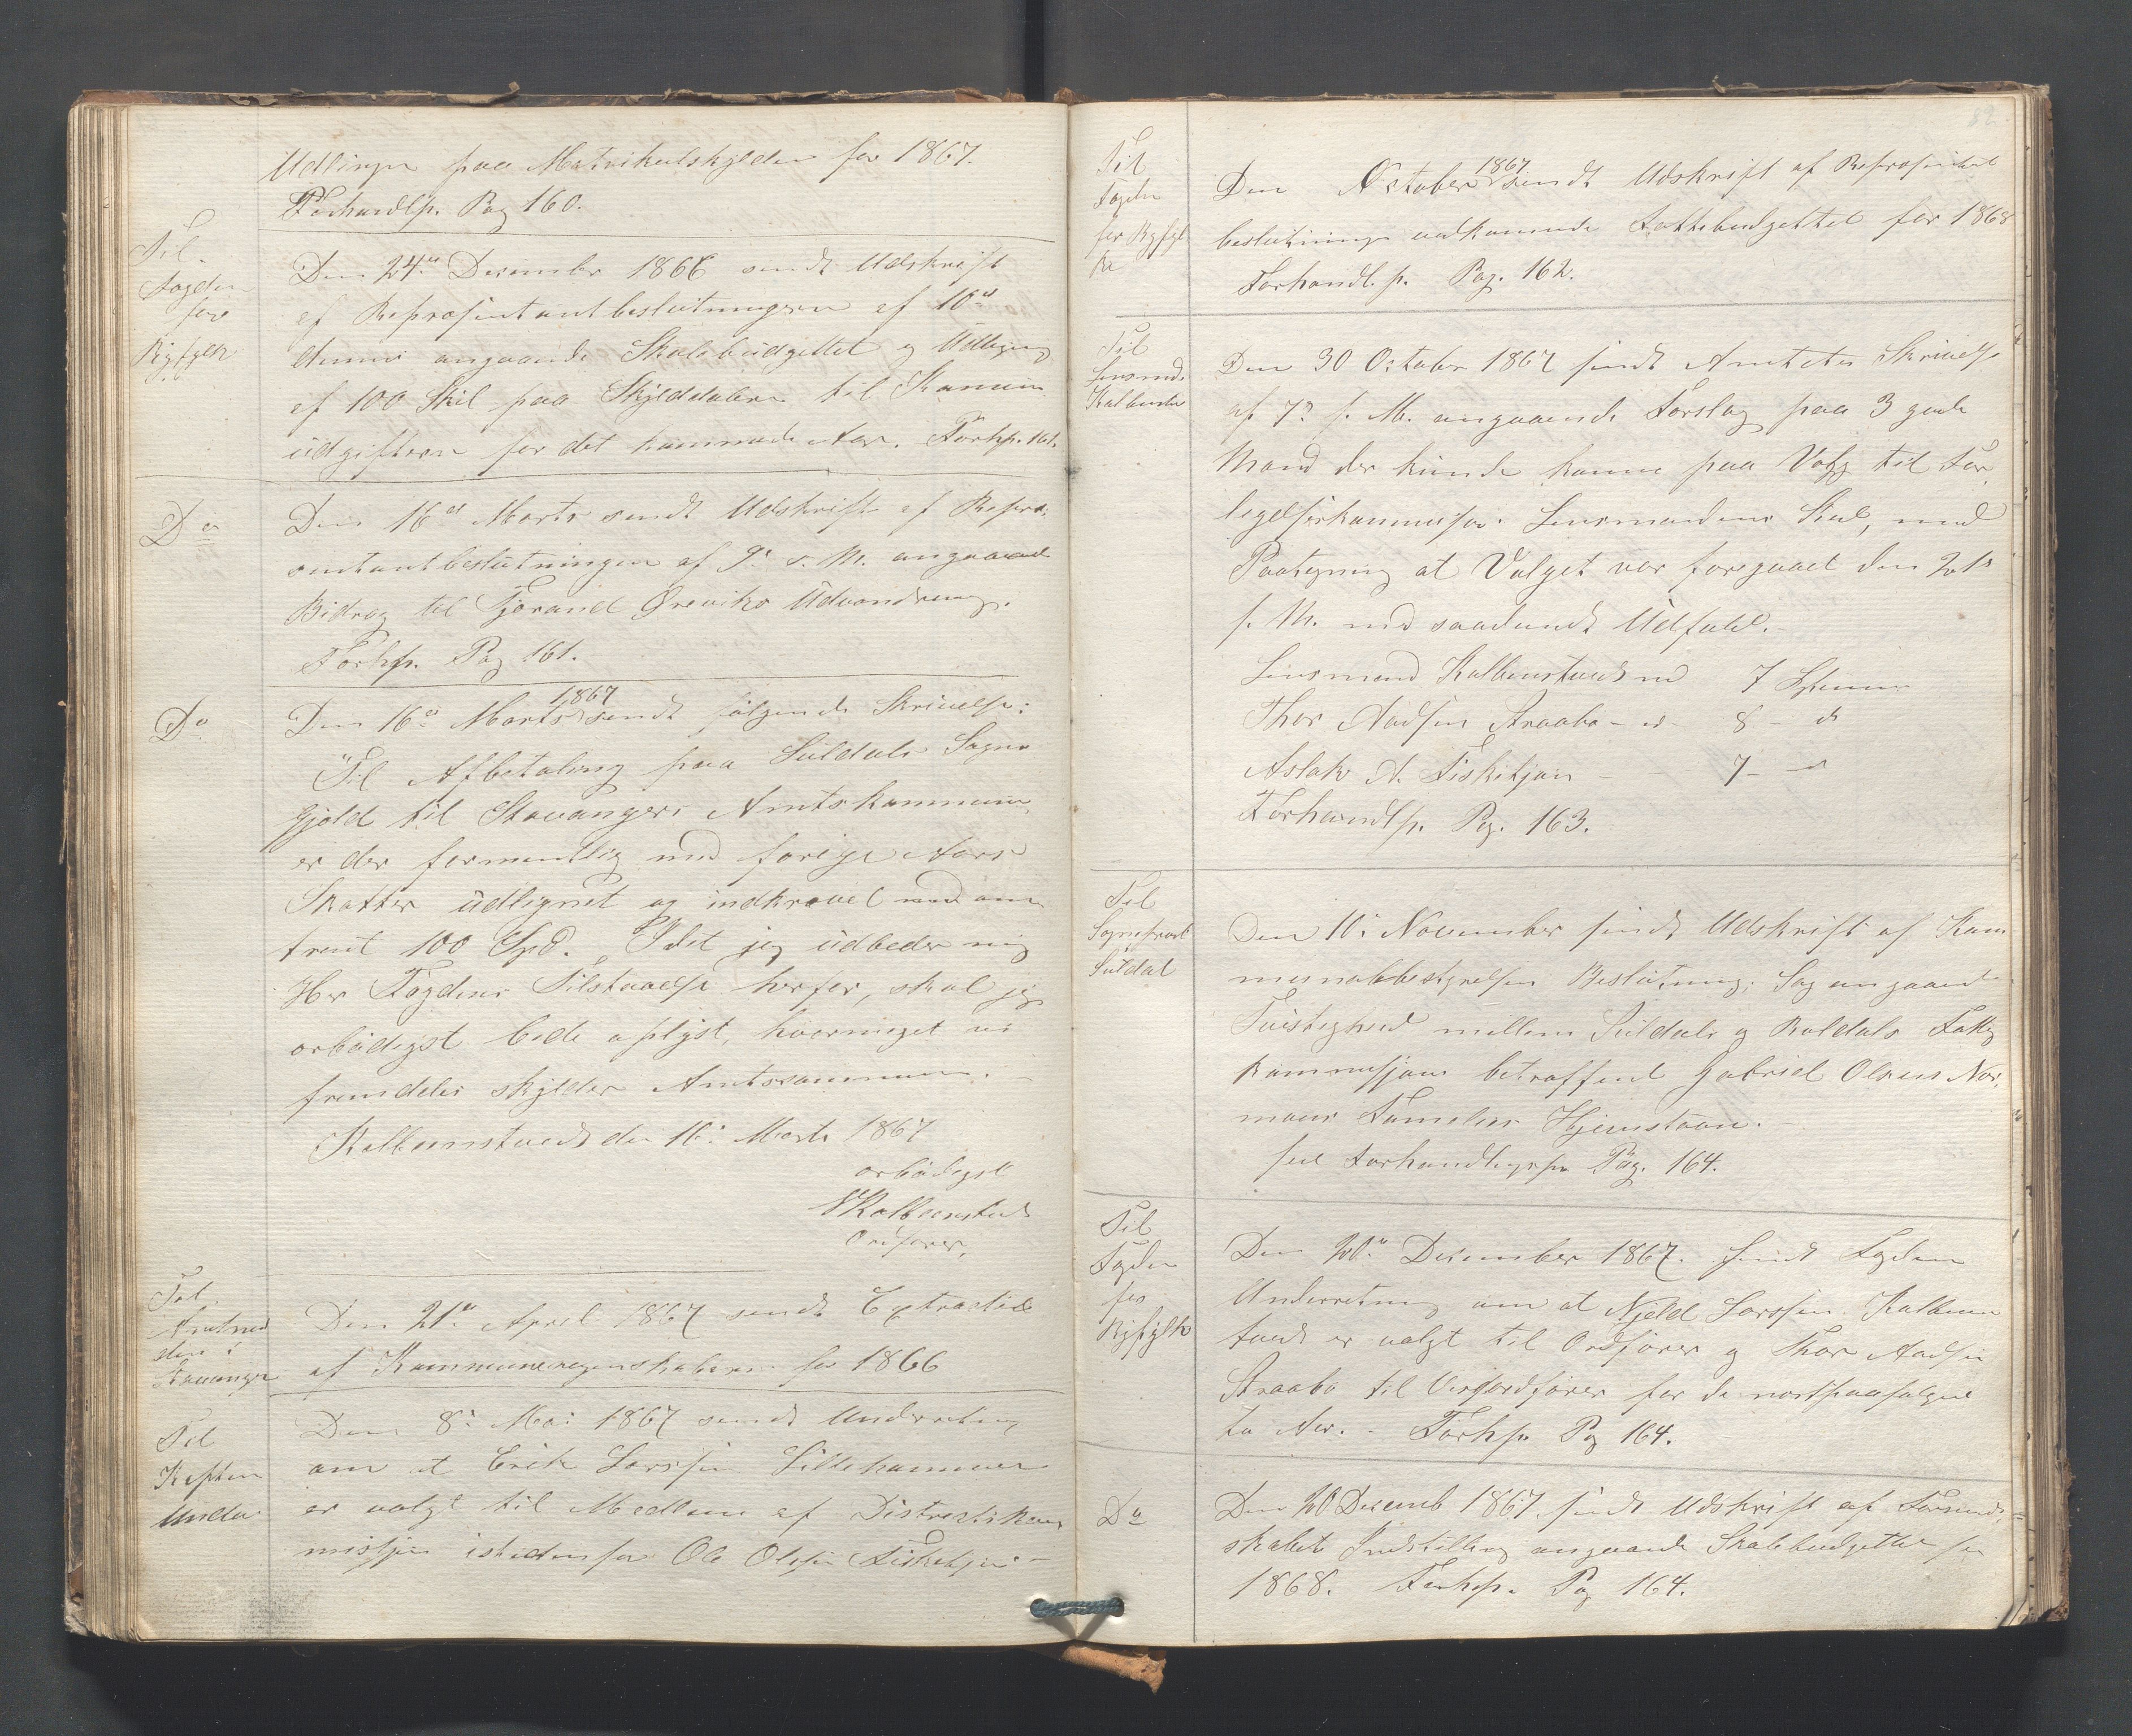 Udligne paa Matrikulskylden for 1867.
Forhandlp. Pag 160.
Til
Fogden
for
Ryfylke
Den 24de December 1866 sendt Udskrift
af Repræsentantbeslutningen af 10de
dennes angaaende Skolebudgettet og Udligning
af 100 Skil paa Skylddaleren til Kommune
udgifterne for det kommende Aar. Forhp. 161.
Do
Den 16de Marts sendt Udskrift af Repræ-
sentantbeslutningen af 9de s. M. angaaende
Bidrag til Gjeraud Øreviks Udvandring.
Forhp. Pag 161.
Do
Den 16de Marts 1867 sendt følgende Skrivelse:
"Til Afbetaling paa Suldals Sogns
Gjæld til Stavangers Amtskommune
er der formentlig med forrige Aars
Skatter udlignet og indkrævet med om
trent 100 Spd. Idet jeg udbeder mig
Hr Fogdens Tilstaaelse herfor, skal jeg
ærbødigst bede oplyst, hvormeget vi
fremdeles skylder Amtskommunen.
Kolbeinstvedt den 16de Marts 1867
ærbødigst
Kolbeinstvedt
Ordfører.
Til
Amtmanden
i
Stavanger
Den 21de April 1867 sendt Extracter
af Kommuneregnskaberne for 1866
Til
Kaptein
Müller
Den 8de Mai 1867 sendt Underretning
om at Erik Larssen Lillehammer
er valgt til Medlem af Distriktskom
missjon istedenfor Ole Olsen Fiskekjøn
82
Til
Fogden
for Ryfyl
ke
Den October 1867 sendt Udskrift af Repræsentant
beslutninge vedkommende Fattibudgettet for 1868
Forhandl. p. Pag. 162.
Til
Lensmd.
Kolbenstv
Den 30 October 1867 sendt Amtets Skrivelse
af 7de s. M. angaaende Forslag paa 3 gode
Mænd der kunde komme paa Valg til For
ligelseskommisær i Lensmandens Sted, med
Paategning at Valget var foregaaet den 21de
s. M. med saadandt Udfald.
Lensmand Kolbenstvedt med 7 Stemmer
Thor Aadsen Straabø - " - 8 - "
Aslak A. Fiskekjøn - - 7 - "
Forhandlp. Pag. 163.
Til
Sognepræst
Suldal
Den 10de November sendt Udskrift af Kom
munebestyrelsens Beslutning i Sag angaaende
Tvistighed mellem Suldals og Røldals Fattig
kommissjon betræffende Gabriel Olsen Nor
mans Families Hjemstavn.
see Forhandlingsp. Pag. 164.
Til
Fogden
for
Ryfylke
Den 20de December 1867. sendt Fogden
Underretning om at Njeld Larssen Kolbeen
tvedt er valgt til Ordfører og Thor Aadsen
Straabø til Viceordfører for de næstpaafølgende
to Aar. - Forhp. Pag 164.
Do
Den 20 Decemb 1867 sendt Udskrift af Formand-
skabets Indstilling angaaende Skolebudgettet for
1868. Forhp. Pag 164.